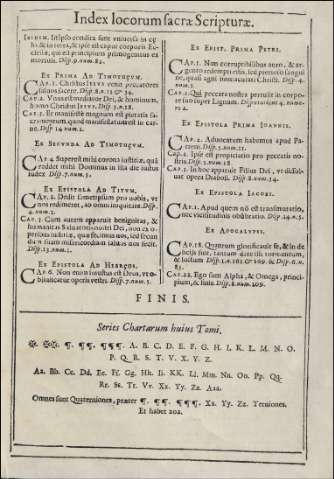 Index locorum sacræ Scripturæ.
IBIDEM. In ipso condita sunt vniuersa in cę-
lis & in terra, & ipse est caput corporis Ec-
clesiæ, qui est principium primogenitus ex
mortuis. Disp. 9. num. 82.
EX PRIMA AD TIMOTHEVM.
CAP. 1. Christus Iesus venit peccatores
saluos facere. Disp. 2.
CAP. 2. Vnus est mediator Dei, & hominum,
homo Christus Iesus. Disp.
CAP. 3. Et manifestè magnum est pietatis sa-
cramentum, quod manifestatum est in car-
ne. Disp. 14. num. 2.
EX SECVNDA AD TIMOTHEVM.
CAP. 4. Superest mihi corona iustitiæ, quā
reddet mihi Dominus in illa die iustus
iudex. Disp. 7. num. 5.
EX EPISTOLA AD TITVM.
CAP. 2. Dedit semetipsum pro nobis, vt
nos redimeret, ab omni iniquitate. Disp.
4. num. 2.
CAP. 3. Cum autem apparuit benignitas, &
humanitas Saluatoris nostri Dei, non ex o-
peribus iustitiæ, quæ fecimus nos, sed secun-
dum suam misericordiam saluos nos fecit.
Disp. 13. num. 2.
EX EPISTOLA AD HEBRÆOS.
CAP. 6. Non enim iniustus est Deus, vt o-
bliuiscatur operis vestri. Disp. 7. num. 5.
EX EPIST. PRIMA PETRI.
CAP. 1. Non corruptibilibus auro, & ar-
gento redempti estis, sed pretioso sangui-
ne, quasi agni immaculati Christi. Disp. 4.
num. 2.
CAP. 2. Qui peccata nostra pertulit in corpo-
re suo super lignum. Disputatione 4. nume-
ro 2.
EX EPISTOLA PRIMA IOANNIS.
CAP. 2. Aduocatum habemus apud Pa-
trem. Disp. 5. num. 21.
CAP. 2. Ipse est propitiatio pro peccatis no-
stris. Disp. 5. num. 18
CAP. 3. In hoc apparuit Filius Dei, vt dissol-
uat opera Diaboli. Disp. 8. num. 54.
EX EPISTOLA IACOBI.
CAP. 1. Apud quem nō est transmutatio,
nec vicissitudinis obūbratio. Disp. 24. n. 5.
EX APOCALYPS.
CAP. 18. Quantum glorificauit se, & in de-
licijs fuit, tantum date illi tormentum,
& luctum
CAP. 22. Ego sum Alpha, & Omega, princi-
pium, & finis. Disp. 8. num. 209.
FINIS.
Series Chartarum huius Tomi.
✠. ✠✠. ¶. ¶¶. ¶¶¶. A. B. C. D. E. F. G. H. I. K. L. M. N. O.
P. Q. R. S. T. V. X. Y. Z.
Aa. Bb. Cc. Dd. Ee. Ff. Gg. Hh. Ii. KK. Ll. Mm. Nn. Oo. Pp. Qq.
Rr. Ss. Tt. Vv. Xx. Yy. Zz. Aaa.
Omnes sunt Quaterniones, præter ¶. ¶¶. ¶¶¶. Xx. Yy. Zz. Terniones.
Et habet 202.